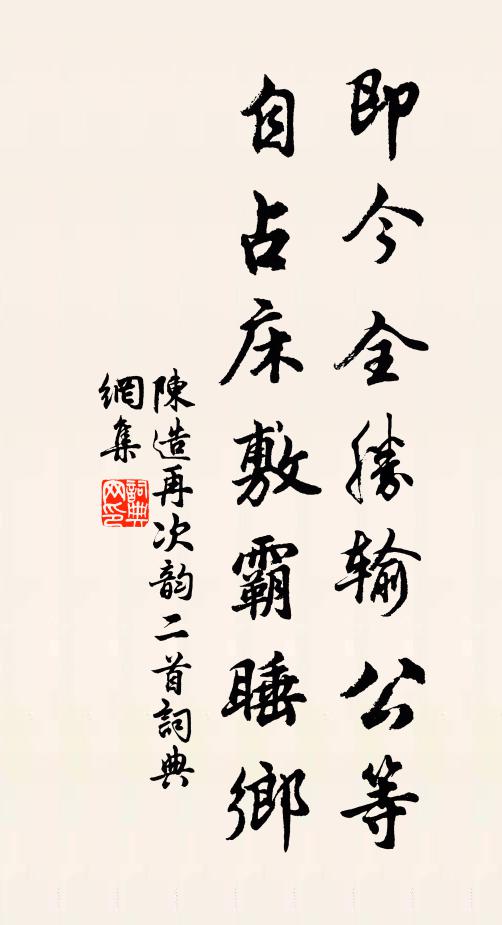 即今全勝輸公等
自占床敷霸睡鄉
陳造再次韵二首詞典
網集
詞典網印